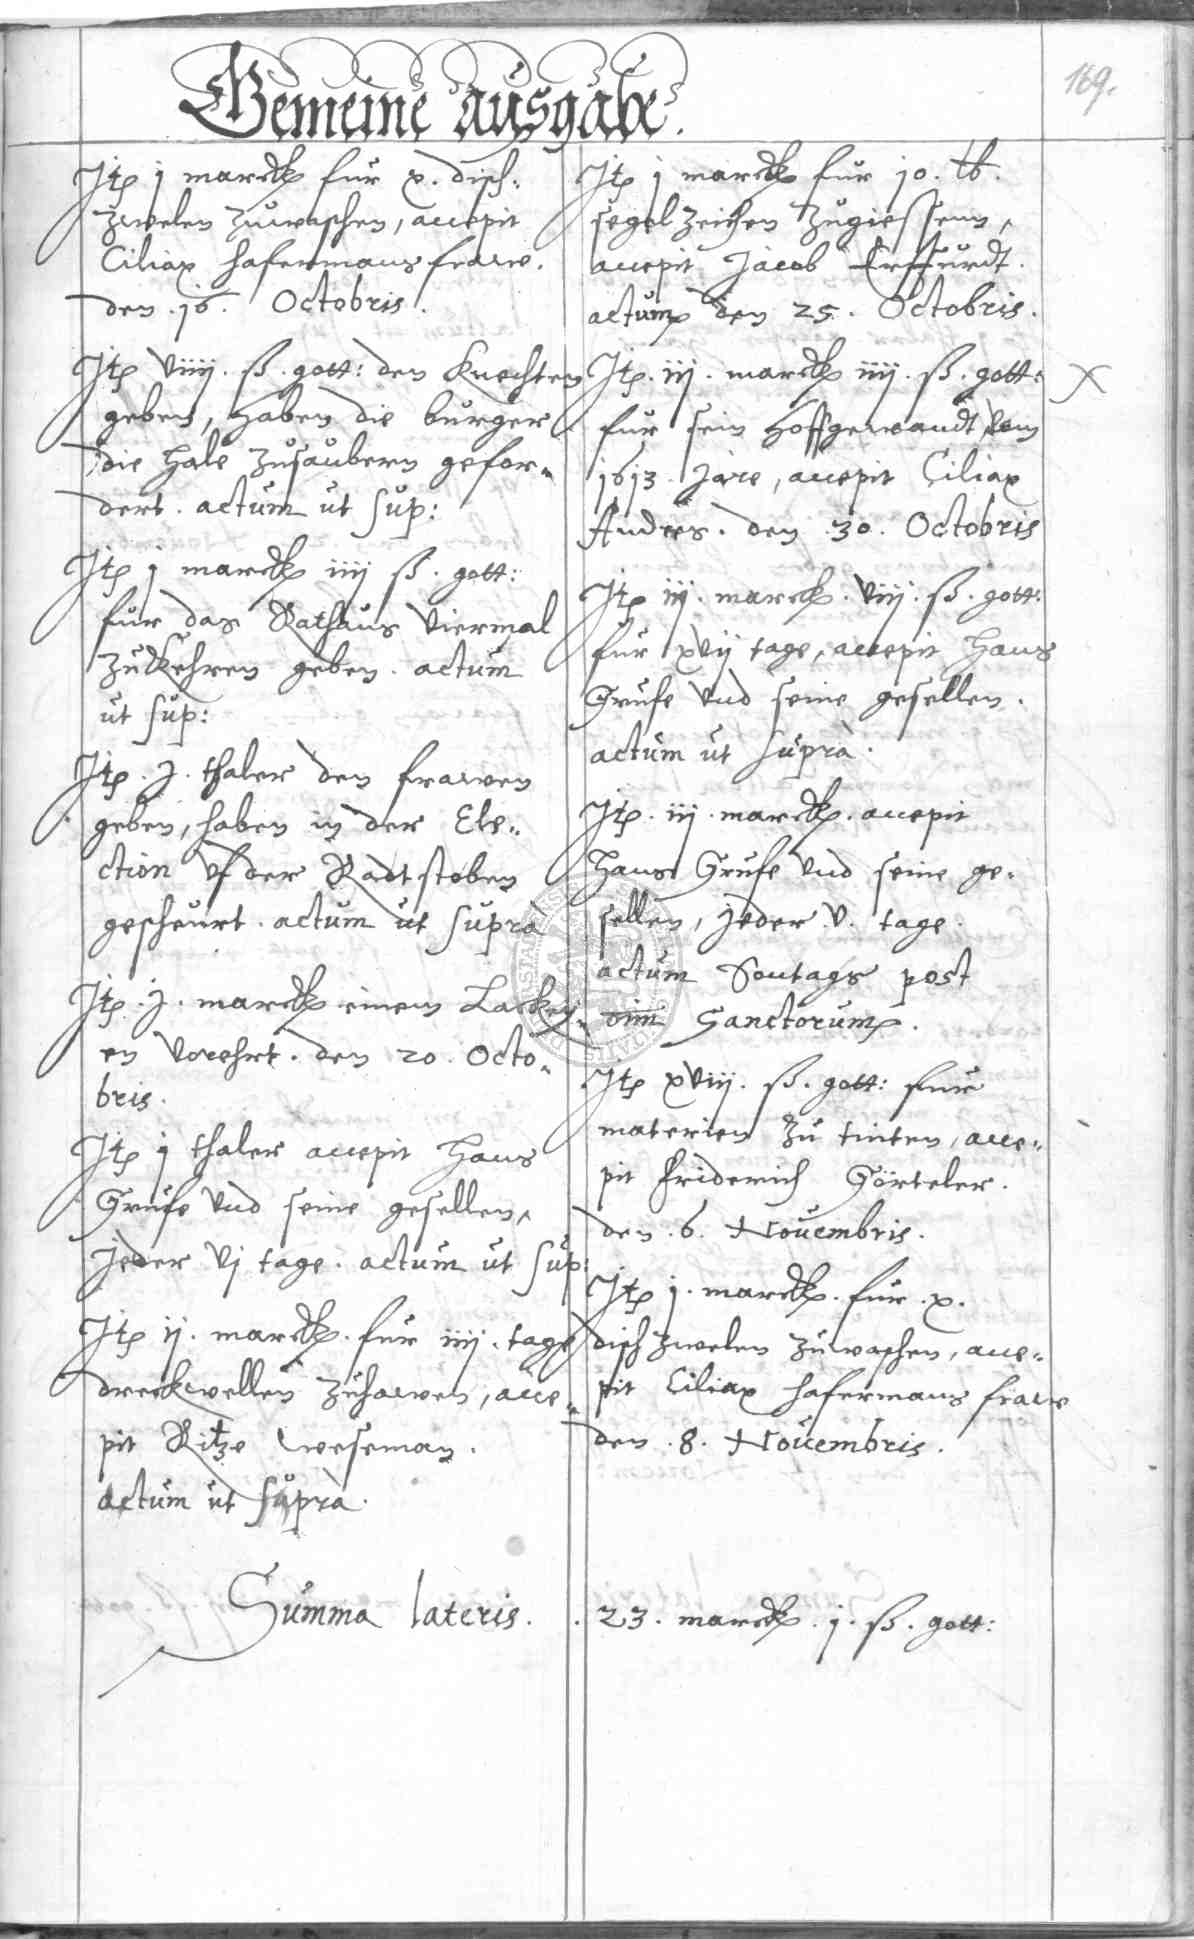 Gemeine ausgabe.
169.
Itp j marck fur x. disch-
zwelen zuwaschen, accepit
Ciliax hafermans fraw.
den .16. Octobris.
Itp viiij. ß. gott: den knechten
geben, haben die burger
die hale zusaubern gefor-
dert. actum ut sup:
Itp j marck iiij ß. gott:
fur das Rathaus viermal
zukehren geben. actum
ut sup:
Itp. j. thaler den frawen
geben, haben in der Ele-
ction uf der Radtstoben
gescheurt. actum ut supra
Itp. j. marck einem Lackey-
en vorehrt. den 20. Octo-
bris.
Itp j thaler accepit Hans
Grufe vnd seine gesellen,
jeder vj tage. actum ut sup:
Itp ij. marck. fur iiij. tage
dreckwellen zuhawen, acce-
pit Ritze weseman.
actum ut supra.
Itp j marck fur 10. ℔.
segel zeichen zugiessenn,
accepit Jacob Erffurdt.
actum den 25. Octobris.
Itp. iij. marck iiij. ß. gott: X
fur sein hoffgewandt vom
1613. Jare, accepit Ciliax
Andres. den .30. Octobris
Itp iij. marck. viij. ß. gott:
fur xvij tage, accepit Hans
Grufe vnd seine gesellen.
actum ut supra.
Itp. iij. marck. accepit
Hans Grufe vnd seine ge-
sellen, jeder .v. tage.
actum Sontags post
oim Sanctorum.
Itp xviij. ß. gott: fur
materien zu tinten, acce-
pit Friderich Görteler.
den .6. Nouembris.
Itp j. marck. fur .x.
disch zwelen zuwaschen, acce-
pit Ciliax hafermans fraw
den .8. Nouembris.
Summa lateris. . 23. marck. j. ß. gott: